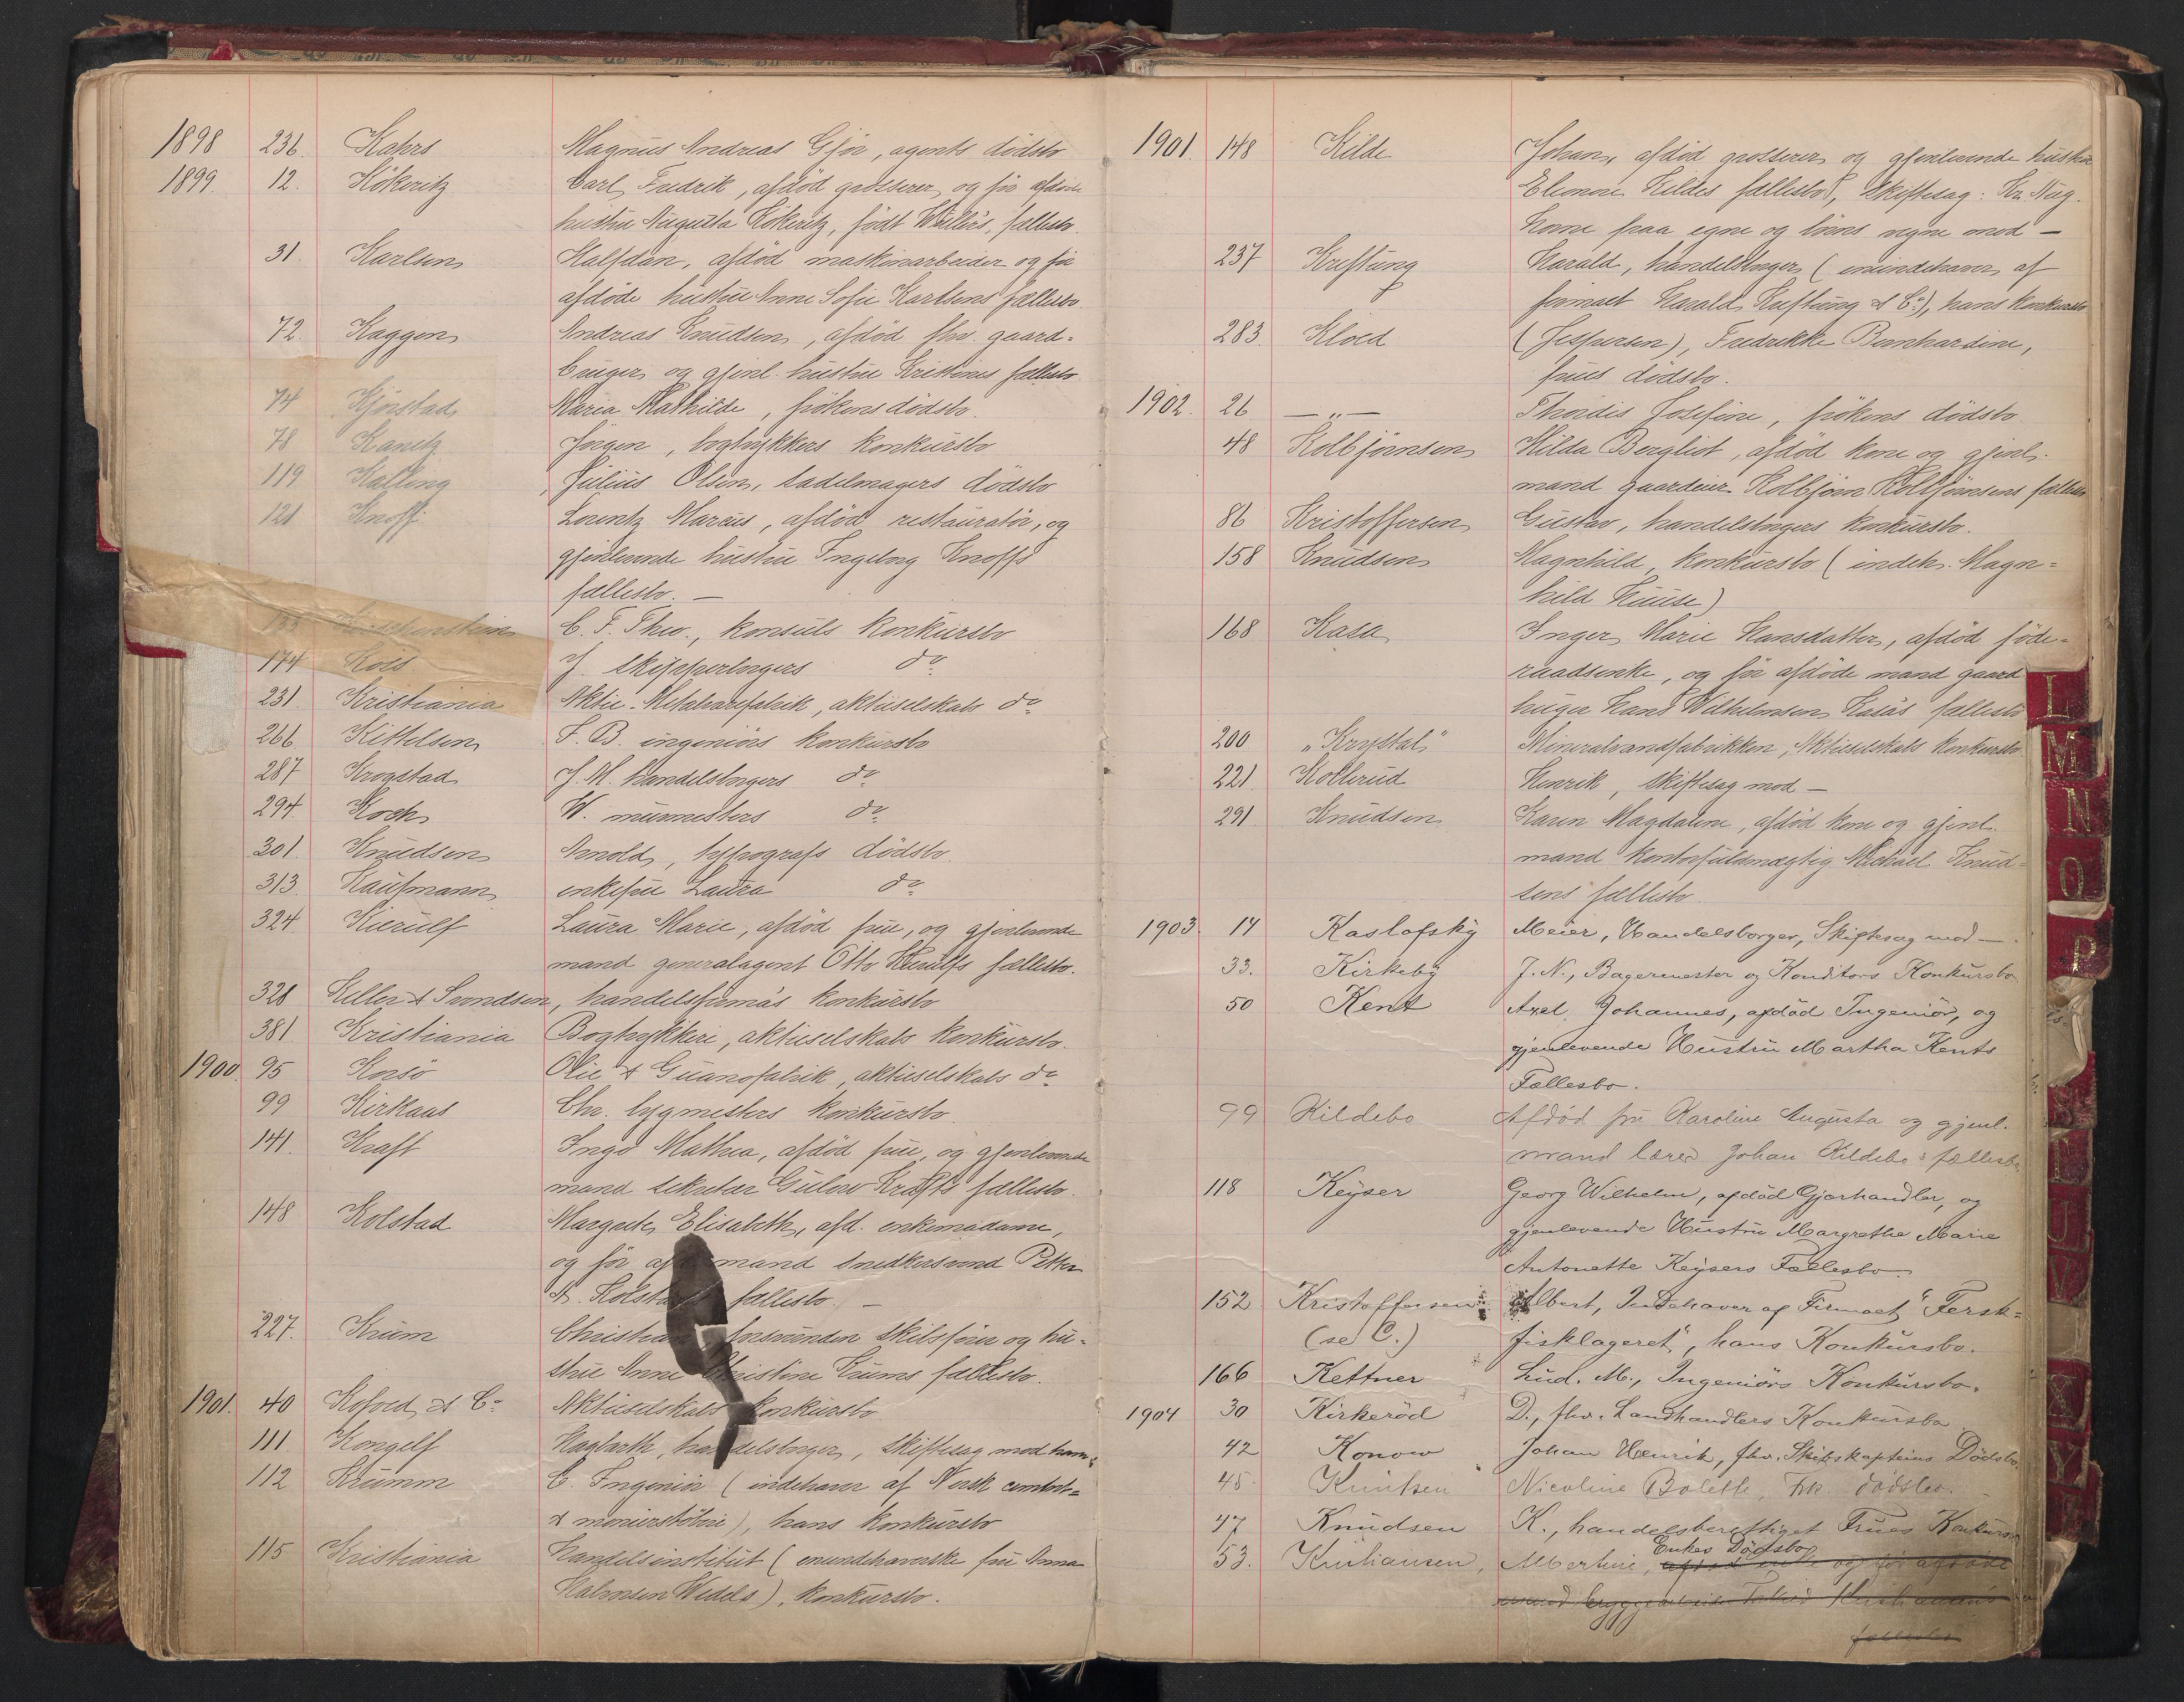 1898 236 Kahrs Magnus Andreas Gjör, agents dödsbo
1899 12. Kökeritz Carl Fredrik, afdød grosserer, og för afdøde
hustru Augusta Kökeritz, født Willers, fællesbo.
31. Karlsen Halfdan, afdød maskinarbeider og för
afdøde hustru Anne Sofie Karlsens fællesbo.
72. Kaggen Andreas Knudsen, afdød fhv. gaard-
bruger og gjenl. hustru Kristines fællesbo
74 Kjörstad Maria Mathilde, frökens dödsbo.
78 Kanetz Jörgen, bogtrykkers konkursbo
119 Kalling Julius Olsen, sadelmagers dödsbo
121 Knoff. Lorentz Marcus, afdød restauratör, og
gjenlevende hustru Ingeborg Knoffs
fællesbo. —
C. F. Theo., konsuls konkursbo
174 J. skipperborgers do
231 Kristiania Aktie-Metalvarefabrik, aktieselskabs do
266 Kittelsen F. B. ingeniörs konkursbo
287 Krogstad J. M. handelsborgers do
294. Koch W. murmesters do
301 Knudsen Arnold, typografs dödsbo.
313 Kaufmann enkefru Laura do
324 Kierulf Laura Marie, afdød frue, og gjenlevende
mand generalagent Otto Kierulfs fællesbo.
328 Keller & Svendsen, handelsfirma's konkursbo
381 Kristiania Bogtrykkeri, aktieselskabs konkursbo.
1900 95 Korsö Olie & Guanofabrik, aktieselskabs do
99 Kirkaas Chr. bygmesters konkursbo.
141. Kraft Inga Mathea, afdød frue, og gjenlevende
mand sekretær Gulow Krafts fællesbo.
148 Kolstad Margrete Elisabeth, afd. enkemadame,
og för mand snedkersvend Petter
A. fællesbo. —
227. Krum Christian forsvunden skibsförer og hu-
stru Anne Christine Krums fællesbo.
1901. 40 Kofoed & Co Aktieselskabs konkursbo
111 Kongelf handelsborger, skiftesag mod ham.
112 Krumm C. Ingeniör (indehaver af Norsk cement-
& monierstöberi), hans konkursbo
115 Kristiania Handelsinstitut (eneindehaverske fru Anna
Halvorsen Wedels), konkursbo.
1901. 148 Kilde Johan, afdød grosserer og gjenlevende hustru
Eleonore Kildes fællesbo, Skiftesag: Kr. Aug.
Horne paa egne og börns vegne mod —
237 Kreftung Harald, handelsborger (eneindehaver af
firmaet Harald Kreftung & Co), hans konkursbo
283. Kloed (Jespersen), Fredrikke Bernhardine,
frues dödsbo.
1902. 26 — „ — Thordis Josefine, frökens dödsbo
48 Kolbjörnsen Hilda Bergliot, afdød kone og gjenl.
mand gaardeier Kolbjörn Kolbjörnsens fællesbo
86 Kristoffersen Gustav, handelsborgers konkursbo.
158 Knudsen Magnhild, konkursbo (indeh. Magn-
hild Kruse)
168 Kasa Inger Marie Hansdatter, afdød föde-
raadsenke, og för afdøde mand gaard
bruger Hans Wilhelmsen Kasas fællesbo
200 „Krystal" Mineralvandfabrikken, Aktieselskabs konkursbo.
221 Kolbrud Henrik, skiftesag mod —
291 Knudsen Karen Magdalene, afdød kone og gjenl.
mand kontorfuldmægtig Michael Knud-
sens fællesbo.
1903. 14 Kaslofsky Meier, Handelsborger, Skiftesag mod —.
33. Kirkeby J. N., Bagermester og Konditors Konkursbo
50 Kent Axel Johannes, afdød Ingeniör, og
gjenlevende Hustru Martha Kents
Fællesbo.
99 Kildebo Afdød fru Karoline Augusta og gjenl.
mand lærer Johan Kildebo's fællesbo
118 Keyser Georg Wilhelm, afdød Gjørhandler, og
gjenlevende Hustru Margrethe Marie
Antonette Keysers Fællesbo.
152 Kristoffersen Albert, Indehaver af Firmaet "Fersk-
(se C.) fisklageret", hans Konkursbo.
166 Kettner Lud. M., Ingeniörs Konkursbo.
1904 30 Kirkeröd D., fhv. Landhandlers Konkursbo
42 Konow Johan Henrik, fhv. Skibskapteins Dödsbo.
45. Knutsen Nicoline Bolette, Frk. dödsbo.
47 Knudsen K., handelsberettiget Frues Konkurs
Enkes Dödsbo
53. Kristiansen, Albertine, afdød enke og för afdøde
mand
fællesbo
L
M
N
O
P
S
T
U
V
X
Y